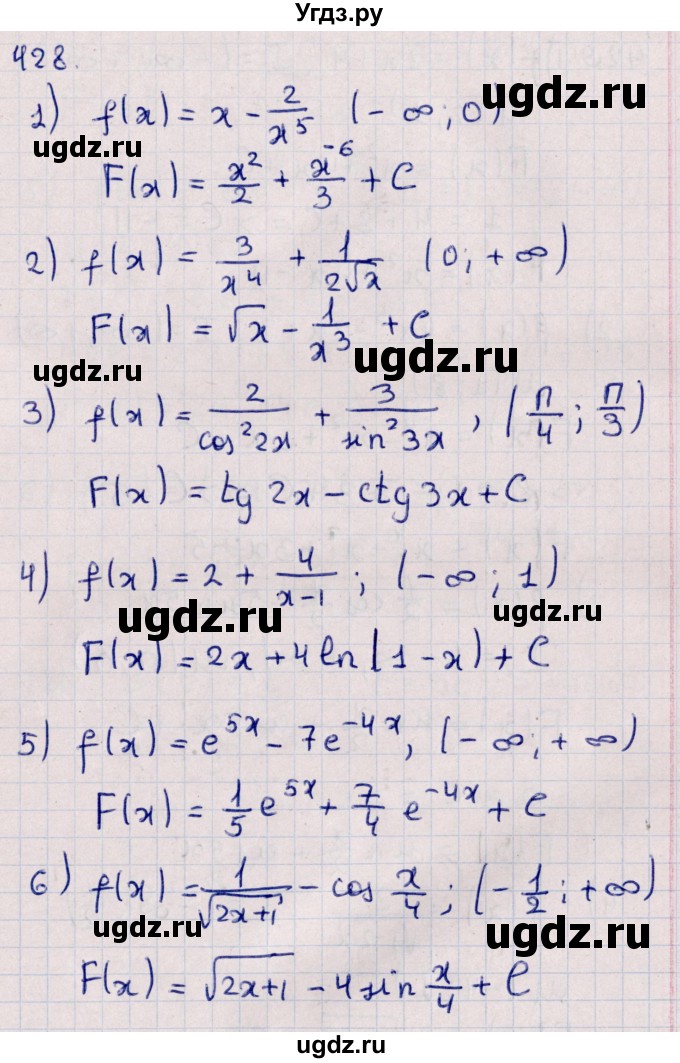 Угдз.ру
428.
1) f(x) = x - 2/x⁵ (-∞; 0)
ugdz.ru
ugdz.ru
F(x) = x²/2 + x⁻⁶/3 + C
2) f(x) = 3/x⁴ + 1/(2√x) (0; +∞)
F(x) = √x - 1/x³ + C
ugdz.ru
ugdz.ru
3) f(x) = 2/cos²2x + 3/sin²3x , (π/4; π/3)
F(x) = tg 2x - ctg 3x + C
4) f(x) = 2 + 4/(x-1); (-∞; 1)
ugdz.ru
ugdz.ru
F(x) = 2x + 4 ln(1-x) + C
5) f(x) = e⁵ˣ - 7e⁻⁴ˣ, (-∞; +∞)
F(x) = 1/5 e⁵ˣ + 7/4 e⁻⁴ˣ + C
6) f(x) = 1/√(2x+1) - cos x/4; (-1/2; +∞)
ugdz.ru
ugdz.ru
F(x) = √(2x+1) - 4 sin x/4 + C
ugdz.ru